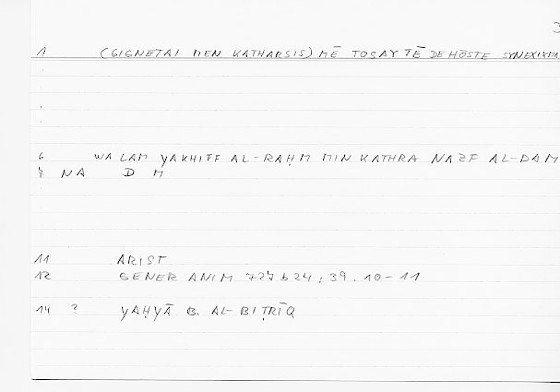 1 (GIGNETAI MEN KATHARSIS) MĒ TOSAYTĒ DE HŌSTE
6 WA LAM YAKHIFF AL-RAḤM MIN KATHRA NAZF AL-DAM
NA D M
11 ARIST
12 GENER ANIM 727b24; 39.10-11
14 ? YAḤYĀ B. AL-BIṬRĪQ